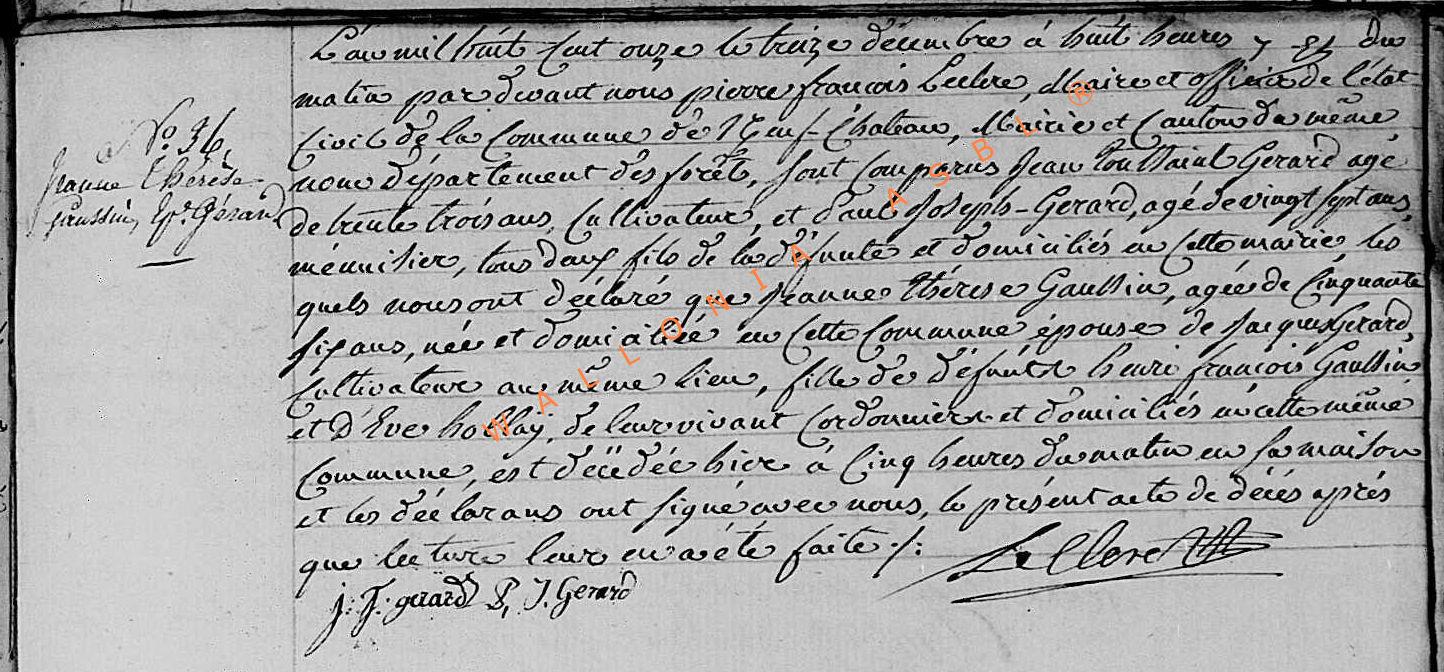 L'an mil huit cent onze le treize décembre à huit heures du
matin par devant nous pierre françois Leclere, Maire et officier de l'état
Civil de la Commune de Neuf-Chateau, Mairie et Canton du même
nom département des forêts, sont comparus Jean Toussaint Gerard agé
de trente trois ans, Cultivateur, et Paul Joseph-Gerard, agé de vingt sept ans,
ménuisier, tous deux fils de la défunte et domiciliés en cette mairie, les
quels nous ont déclaré que Jeanne Thérese Gaussin, agée de Cinquante
six ans, née et domiciliée en cette Commune épouse de Jacques Gerard,
Cultivateur au même lieu, fille de défunts henri françois Gaussin
et D'Eve de leur vivant Cordonniers et domiciliés en cette même
Commune, est décédée hier à Cinq heures du matin en sa maison
et les déclarans ont signé avec nous, le présent acte de décès après
que lecture leur en a été faite ./.
No. 36.
Jeanne Thérèse
Gaussin, Ep. Gérard
LeClere
j: T: gerard P, J. Gerard
WALLONIA ASBL ®